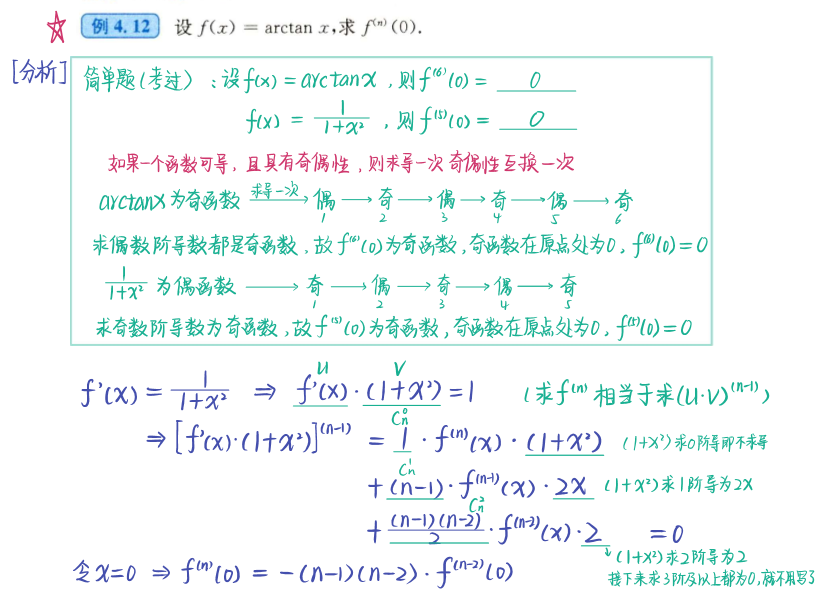 例 4.12 设 f(x) = arctan x,求 f⁽ⁿ⁾(0).
[分析]
简单题(考过):设f(x) = arctanx,则f⁽⁶⁾(0) = 0
f(x) = 1/(1+x²),则f⁽⁵⁾(0) = 0
如果一个函数可导,且具有奇偶性,则求导一次奇偶性互换一次
arctanx为奇函数 求导一次→ 偶 → 奇 → 偶 → 奇 → 偶 → 奇
1 2 3 4 5 6
求偶数阶导数都是奇函数,故f⁽⁶⁾(0)为奇函数,奇函数在原点处为0,f⁽⁶⁾(0)=0
1/(1+x²) 为偶函数 → 奇 → 偶 → 奇 → 偶 → 奇
1 2 3 4 5
求奇数阶导数为奇函数,故f⁽⁵⁾(0)为奇函数,奇函数在原点处为0,f⁽⁵⁾(0)=0
U V
f'(x) = 1/(1+x²) ⇒ f'(x)·(1+x²)=1 (求f⁽ⁿ⁾相当于求(U·V)⁽ⁿ⁻¹⁾)
Cₙ⁰
⇒ [f'(x)·(1+x²)]⁽ⁿ⁻¹⁾ = 1·f⁽ⁿ⁾(x)·(1+x²) (1+x²)求0阶导即不求导
Cₙ¹
+(n-1)·f⁽ⁿ⁻¹⁾(x)·2x (1+x²)求1阶导为2x
Cₙ²
+(n-1)(n-2)/2·f⁽ⁿ⁻²⁾(x)·2 =0
↓(1+x²)求2阶导为2
接下来求3阶及以上都为0,就不用写了
令x=0 ⇒ f⁽ⁿ⁾(0) = -(n-1)(n-2)·f⁽ⁿ⁻²⁾(0)